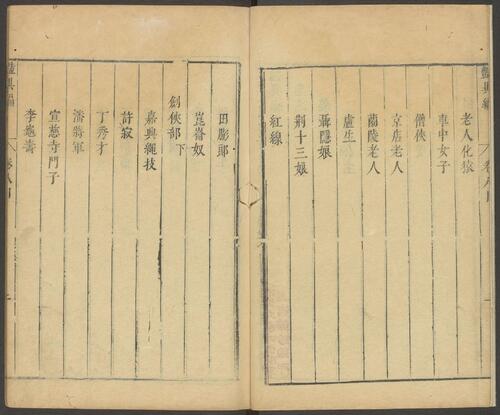 老人化猿
車中女子
僧俠
京店老人
蘭陵老人
盧生
聶隱娘
荊十三娘
紅線
田膨郎
崑崙奴
劍俠部下
嘉興繩技
許寂
丁秀才
潘將軍
宣慈寺門子
李龜壽